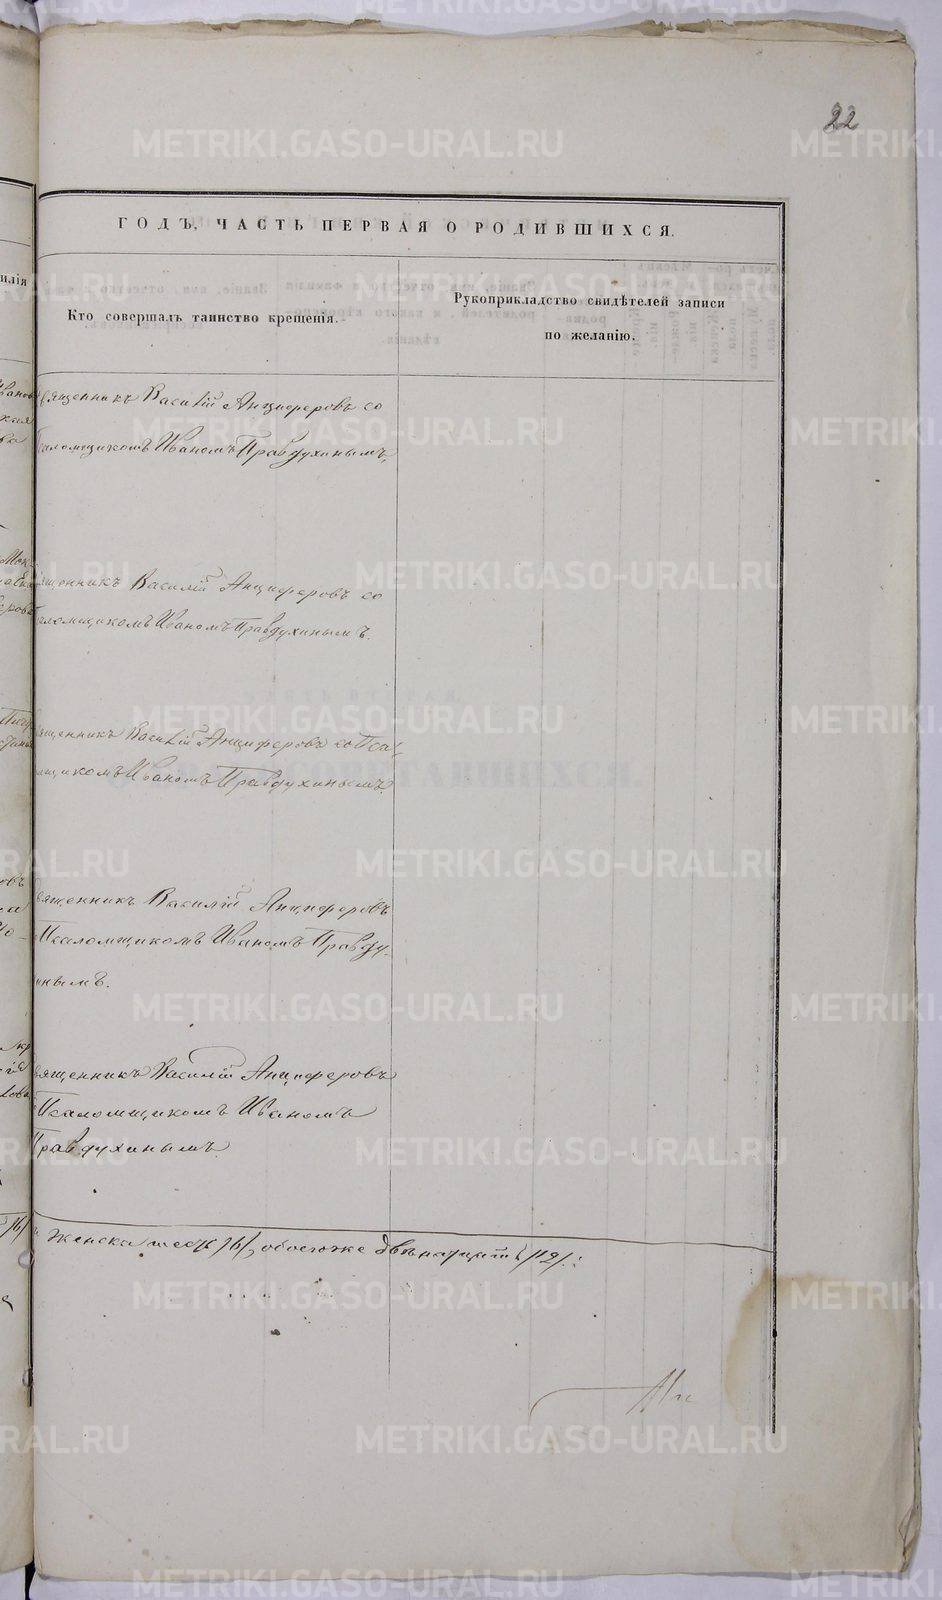 22
ГОДЪ, ЧАСТЬ ПЕРВАЯ О РОДИВШИХСЯ.
Кто совершалъ таинство крещенія.
Рукоприкладство свидѣтелей записи
по желанію.
вященникъ Василій Анциферовъ со
саломщикомъ Иваномъ Правдухинымъ,
ященникъ Василій Анциферовъ со
аломщикомъ Иваномъ Правдухинымъ.
ященникъ Василій Анциферовъ со Пса-
мщикомъ Иваномъ Правдухинымъ.
вященникъ Василій Анциферовъ
Псаломщикомъ Иваномъ Правду-
инымъ.
вященникъ Василій Анциферовъ
Псаломщикомъ Иваномъ
Правдухинымъ
Женска шесть /6/, обоегоже двѣнадцать /12/.
METRIKI.GASO-URAL.RU